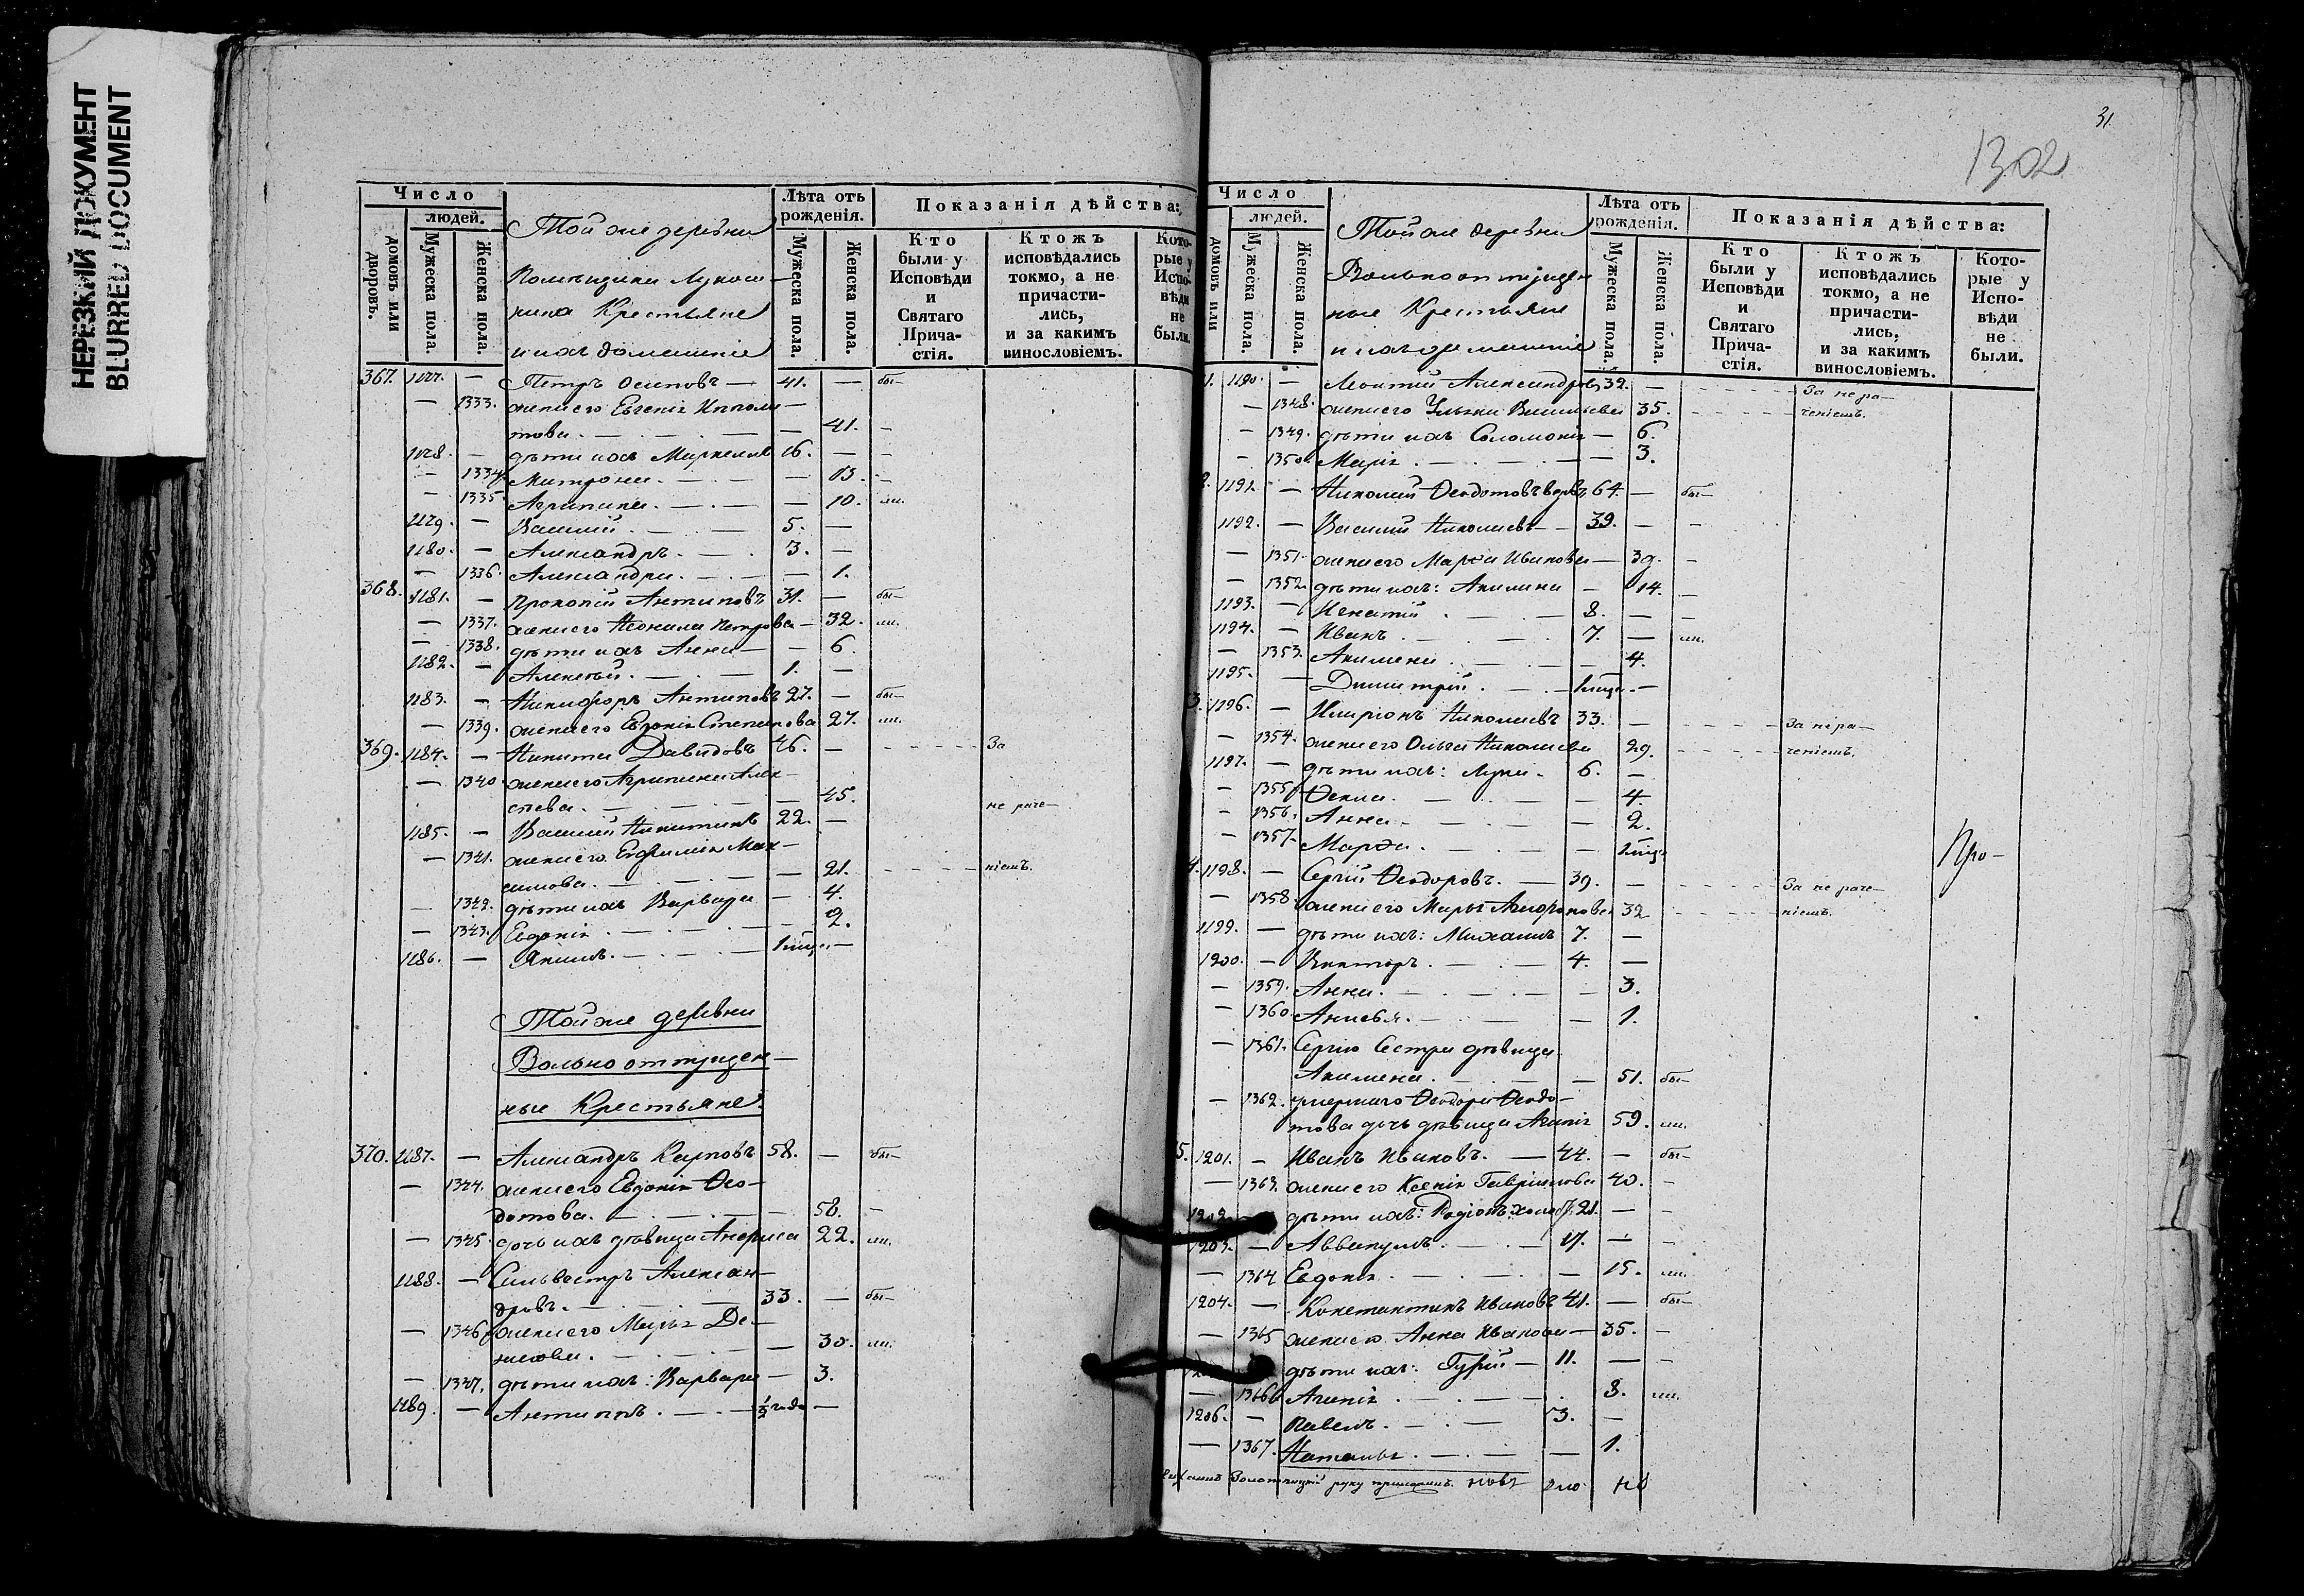 НЕРЕЗКИЙ ДОКУМЕНТ
BLURRED DOCUMENT
Число
людей.
домовъ или дворовъ.
Мужеска пола.
Женска пола.
Той же деревни
Помѣщика Лукош-
кина Крестьяне
и ихъ домашніе
Лѣта отъ рожденія.
Мужеска пола.
Женска пола.
Показанія дѣйства:
Кто были у Исповѣди и Святаго Прича-стія.
Ктожъ исповѣдались токмо, а не причасти-лись, и за какимъ винословіемъ.
Кото-рые у Испо-вѣди не были.
367. 1177. — Петръ Осиповъ — 41. — бы-
— 1333. жена его Евгенія Ипполи-
това. — 41. —
1178. — дѣти ихъ Маркеллъ 16. — —
— 1334. Матрона. — 13. —
— 1335. Агрипина. — 10. ли.
1179. — Василій. 5. —
1180. — Александръ. 3. —
— 1336. Александра. — 1.
368. 1181. — Прокопій Антиповъ 31. — бы-
— 1337. жена его Неонила Петрова — 32. ли.
— 1338. дѣти ихъ Анна — 6.
1182. — Алексѣй. 1. —
1183. — Никифоръ Антиповъ 27. — бы-
— 1339. жена его Евдокія Степанова 27. ли.
369. 1184. — Никита Давидовъ 46. — За
— 1340. жена его Агрипина Алек-
сѣева. — 45. не раче-
1185. — Василій Никитинъ 22. —
— 1341. жена его Евфимія Мак-
симова. — 21. ніемъ.
— 1342. дѣти ихъ Варвара — 4.
— 1343. Евдокія — 2.
1186. — Якимъ. —
Той же деревни
Вольноотпущен-
ные Крестьяне.
370. 1187. — Александръ Карповъ 58. — бы-
— 1344. жена его Евдокія Ѳео-
дотова. — 58. —
— 1345. дочь ихъ дѣвица Анфиса 22. ли.
1188. — Сильвестръ Алексан-
дровъ. 33. — бы-
— 1346. жена его Марья Де-
— 30. ли.
— 1347. дѣти ихъ: Варвара — 3.
1189. — Антипъ. ½ года —
31
1302
Число
людей.
домовъ или
Мужеска пола.
Женска пола.
Той же деревни
Вольноотпущен
ные Крестьяне
и ихъ домашніе
Лѣта отъ рожденія.
Мужеска пола.
Женска пола.
Показанія дѣйства:
Кто были у Исповѣди и Святаго Прича-стія.
Ктожъ исповѣдались токмо, а не причасти-лись, и за какимъ винословіемъ.
Кото-рые у Испо-вѣди не были.
1. 1190. — Леонтій Александровъ 32. — За не ра-
— 1348. жена его Ульяна Васильева 35. ченіемъ.
— 1349. дѣти ихъ Соломонія — 6.
— 1350. Марія. — 3.
2. 1191. — Николай Ѳеодотовъ вдовъ 64. — бы-
1192. — Василій Николаевъ — 39. — —
— 1351. жена его Марѳа Иванова — 39. —
— 1352. дѣти ихъ: Акилина — 14. —
1193. — Игнатій 8. — —
1194. — Иванъ. 7. — ли.
— 1353. Акилина. — 4.
1195. — Димитрій. —
3. 1196. — Иларіонъ Николаевъ 33. — За не ра-
— 1354. жена его Ольга Николаева 29. ченіемъ.
1197. — дѣти ихъ: Лука. 6. —
— 1355. Ѳекла. — 4.
— 1356. Анна. — 2.
— 1357. Марѳа. —
Про-
4. 1198. — Сергій Ѳеодоровъ. — 39. — За не раче-
— 1358. жена его Марья 32 ніемъ.
1199. — дѣти ихъ: Михаилъ 7. —
1200. — Викторъ. 4. —
— 1359. Анна. — 3.
— 1360. Анисья. — 1.
— 1361. Сергія Сестра дѣвица
Акилина. — 51. бы-
— 1362. умершаго Ѳеодора Ѳеодо-
това дочь дѣвица Агапія 59. ли.
5. 1201. — Иванъ Ивановъ. — 44. — бы-
— 1363. жена его Ксенія Гавріилова 40. —
1202. дѣти ихъ: Родіонъ 21. — —
1203. — Аввакумъ. 17. — —
— 1364 Евдокія. — 15. ли.
1204. — Константинъ Ивановъ 41. — бы-
— 1365 жена его Анна Иванова — 35. —
дѣти ихъ: Гурій — 11. — —
— 1366 Агапія. 8. ли.
1206. — Павелъ. 3. —
— 1367. Наталья. — 1.
руку приложилъ.